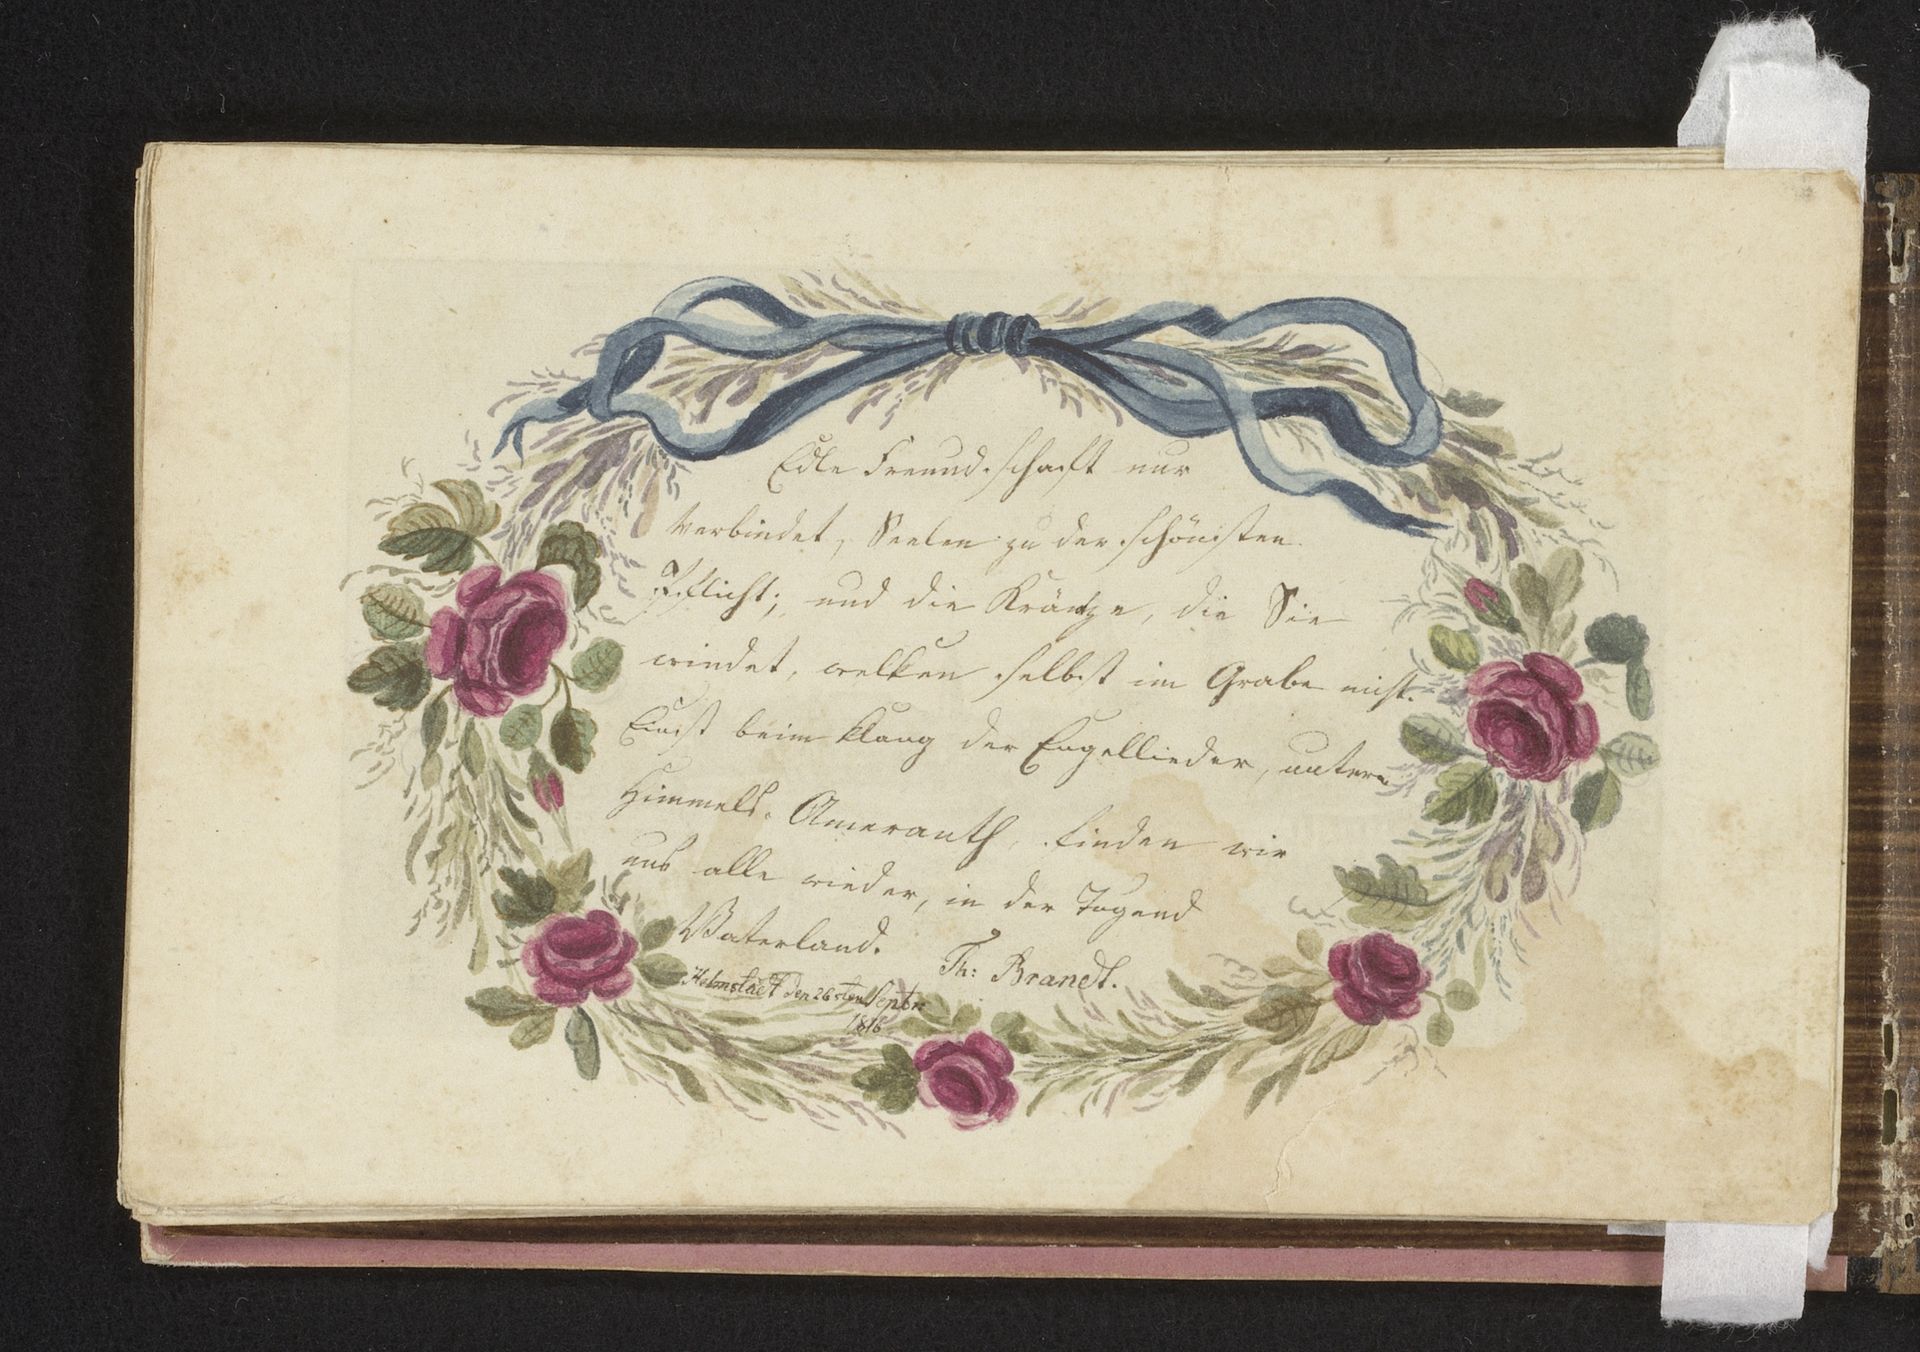 Edle Freundschaft nur
verbindet, Seelen zu der schönsten
Pflicht; und die Kränze, die Sie
windet, welken selbst im Grabe nicht.
Einst beim Klang der Engellieder, unterm
Himmels-Ameranth, finden wir
uns alle wieder, in der Tugend
Vaterland.
Th: Brandt.
Helmstädt den 26sten Septbr
1816